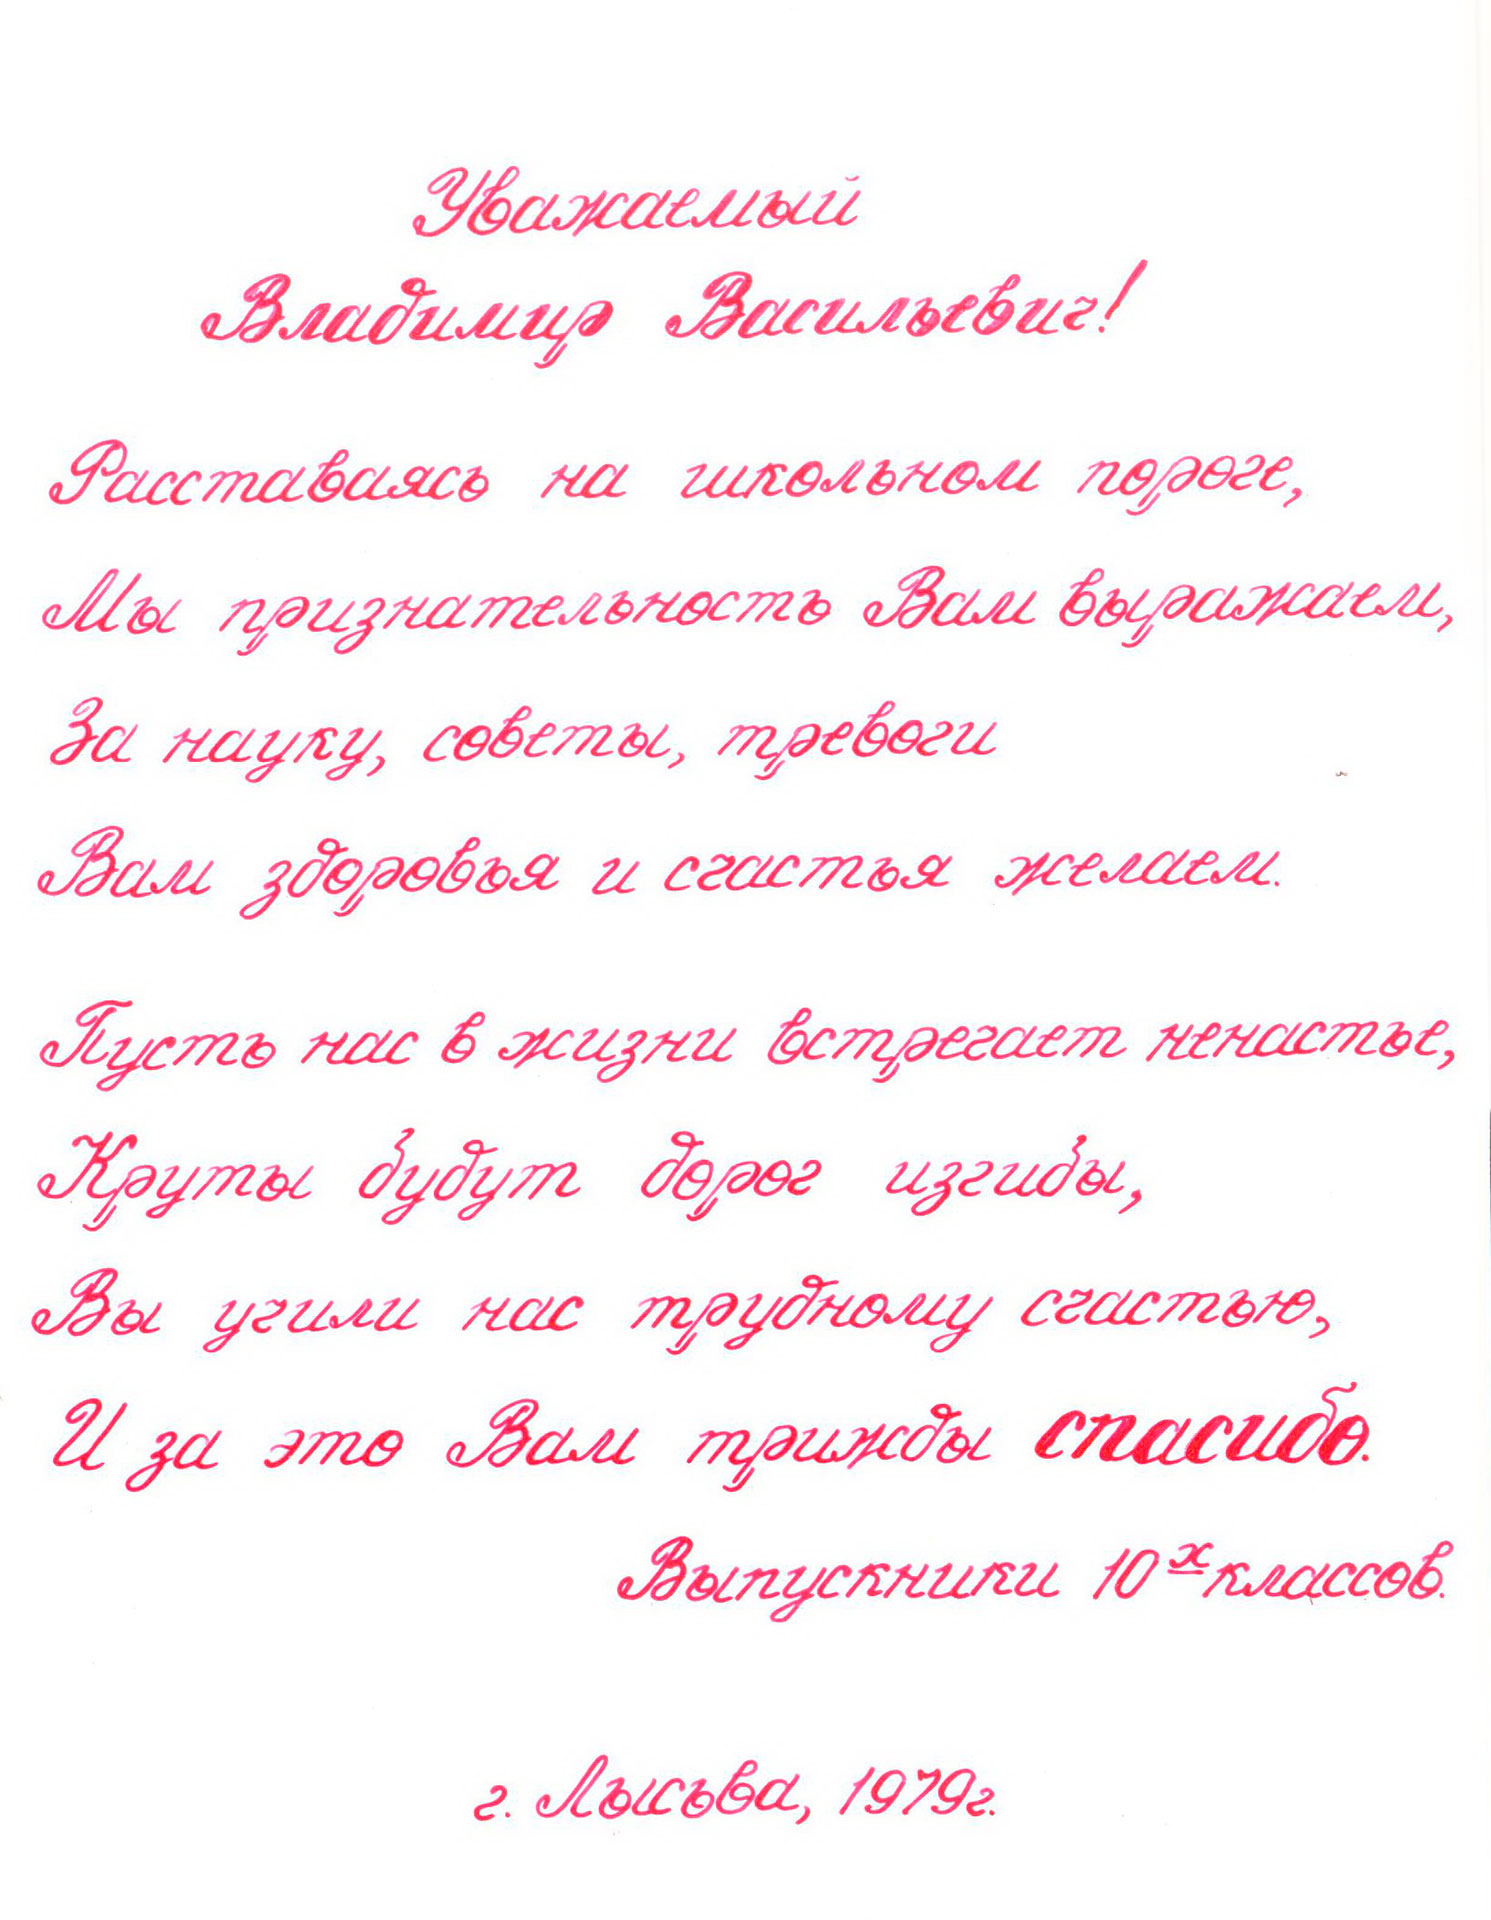 Уважаемый
Владимир Васильевич!
Расставаясь на школьном пороге,
Мы признательность Вам выражаем,
За науку, советы, тревоги
Вам здоровья и счастья желаем.
Пусть нас в жизни встречает ненастье,
Круты будут дорог изгибы,
Вы учили нас трудному счастью,
И за это Вам трижды спасибо.
Выпускники 10х классов.
г. Лысьва, 1979г.